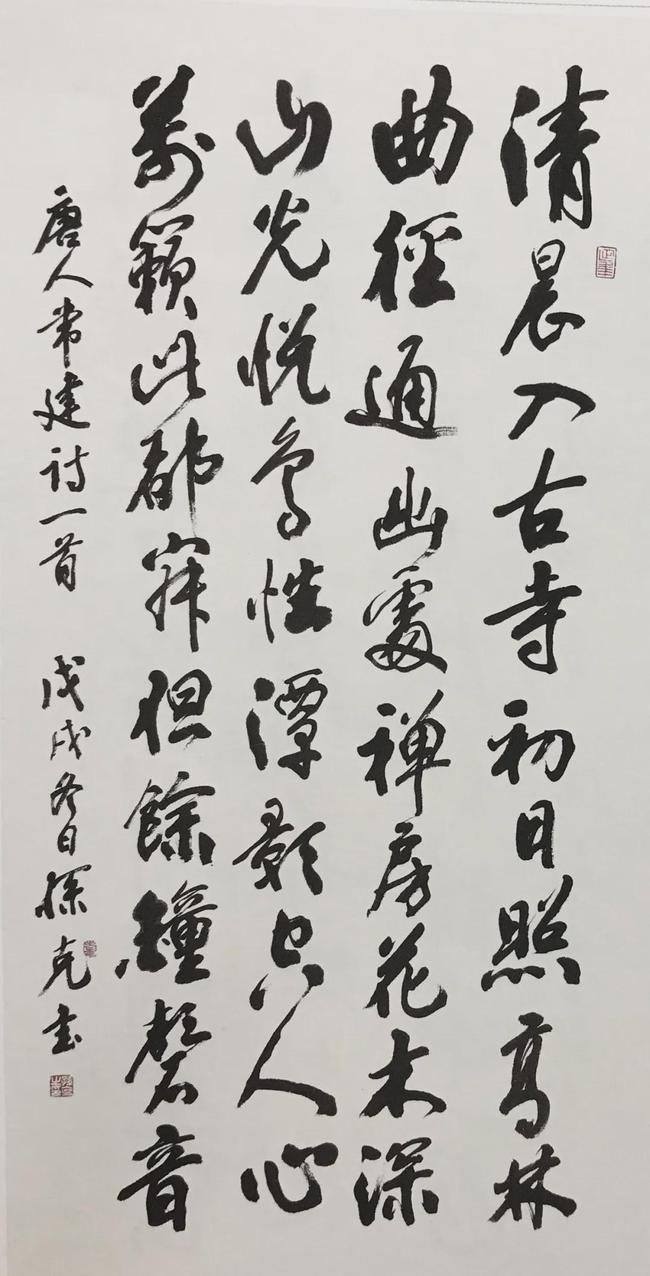 清晨入古寺初日照高林
曲徑通幽處禅房花木深
山光悦鳥性潭影空人心
萬籟此都寂但餘鐘磬音
唐人常建诗一首 戊戌冬日 克书